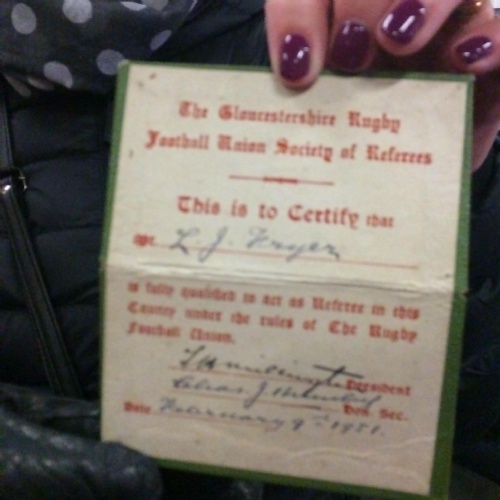 The Gloucestershire Rugby
Football Union Society of Referees
This is to Certify that
Mr. L J. Fryer
is fully qualified to act as Referee in this
County under the rules of The Rugby
Football Union.
President
Chas J
Hon. Sec.
Date February 9th 1951.